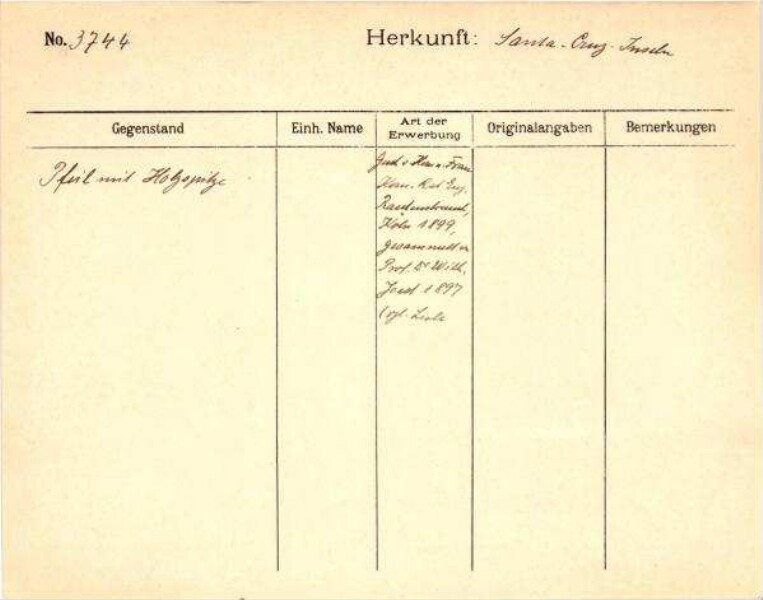 No. 3744 Herkunft: Santa-Cruz-Inseln
Gegenstand Einh. Name Art der Erwerbung Originalangaben Bemerkungen
Pfeil mit Holzspitze
Gesch. v. Herrn u. Frau
Kom. Rat Eug.
Rautenstrauch,
Köln 1899,
gesammelt v.
Prof. Dr Wilh.
Joest 1897
(vgl. Liste